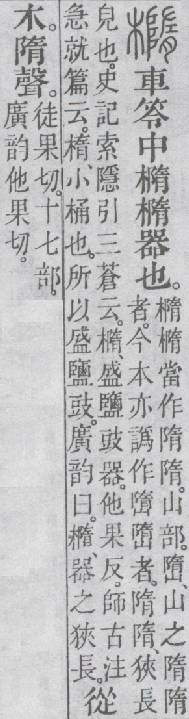 橢車笭中橢橢器也。
橢橢當作隋隋。山部。嶞、山之隋隋
者。今本亦譌作嶞嶞者。隋隋、狹長
皃也。史記索隱引三蒼云。橢、盛鹽豉器。他果反。師古注
急就篇云。橢、小桶也。所以盛鹽豉。廣韵曰。橢、器之狹長。
從
木。隋聲。
徒果切。十七部。
廣韵他果切。